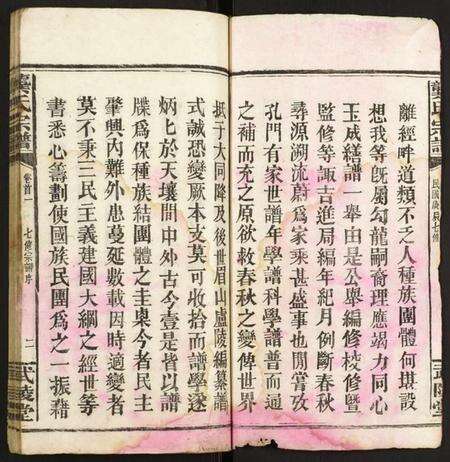 離經呼道類不乏人種族團體何堪設
想我等既屬勾龍嗣裔理應竭力同心
玉成繕譜一舉由是公舉編修校修暨
監修等諏吉進局編年紀月例斷春秋
尋源溯流蔚為家乘甚盛事也閒嘗攷
孔門有家世譜年學譜科學譜普而通
之補而充之原欲救春秋之變俾世界
抵于大同降及後世眉山廬陵編纂譜
式誠恐變厥本支莫可收拾而譜學遂
炳匕於天壤間中外古今壹是皆以譜
牒為保種族結團體之圭臬今者民主
肇興內難外患蔓延數載因時適變者
莫不秉三民主義建國大綱之經世等
書悉心籌劃使國族民團為之一振藉
龔氏宗譜
卷首一
七修宗譜序
二
武陵堂
龔氏宗譜
武陵堂